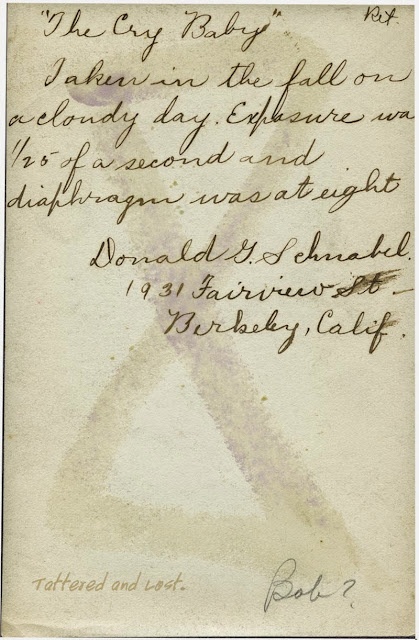 "The Cry Baby"
Ret.
Taken in the fall on
a cloudy day. Exposure wa
1/25 of a second and
diaphragm was at eight
Donald G. Schnabel.
1931 Fairview St -
Berkeley, Calif.
Tattered and Lost.
Bob?